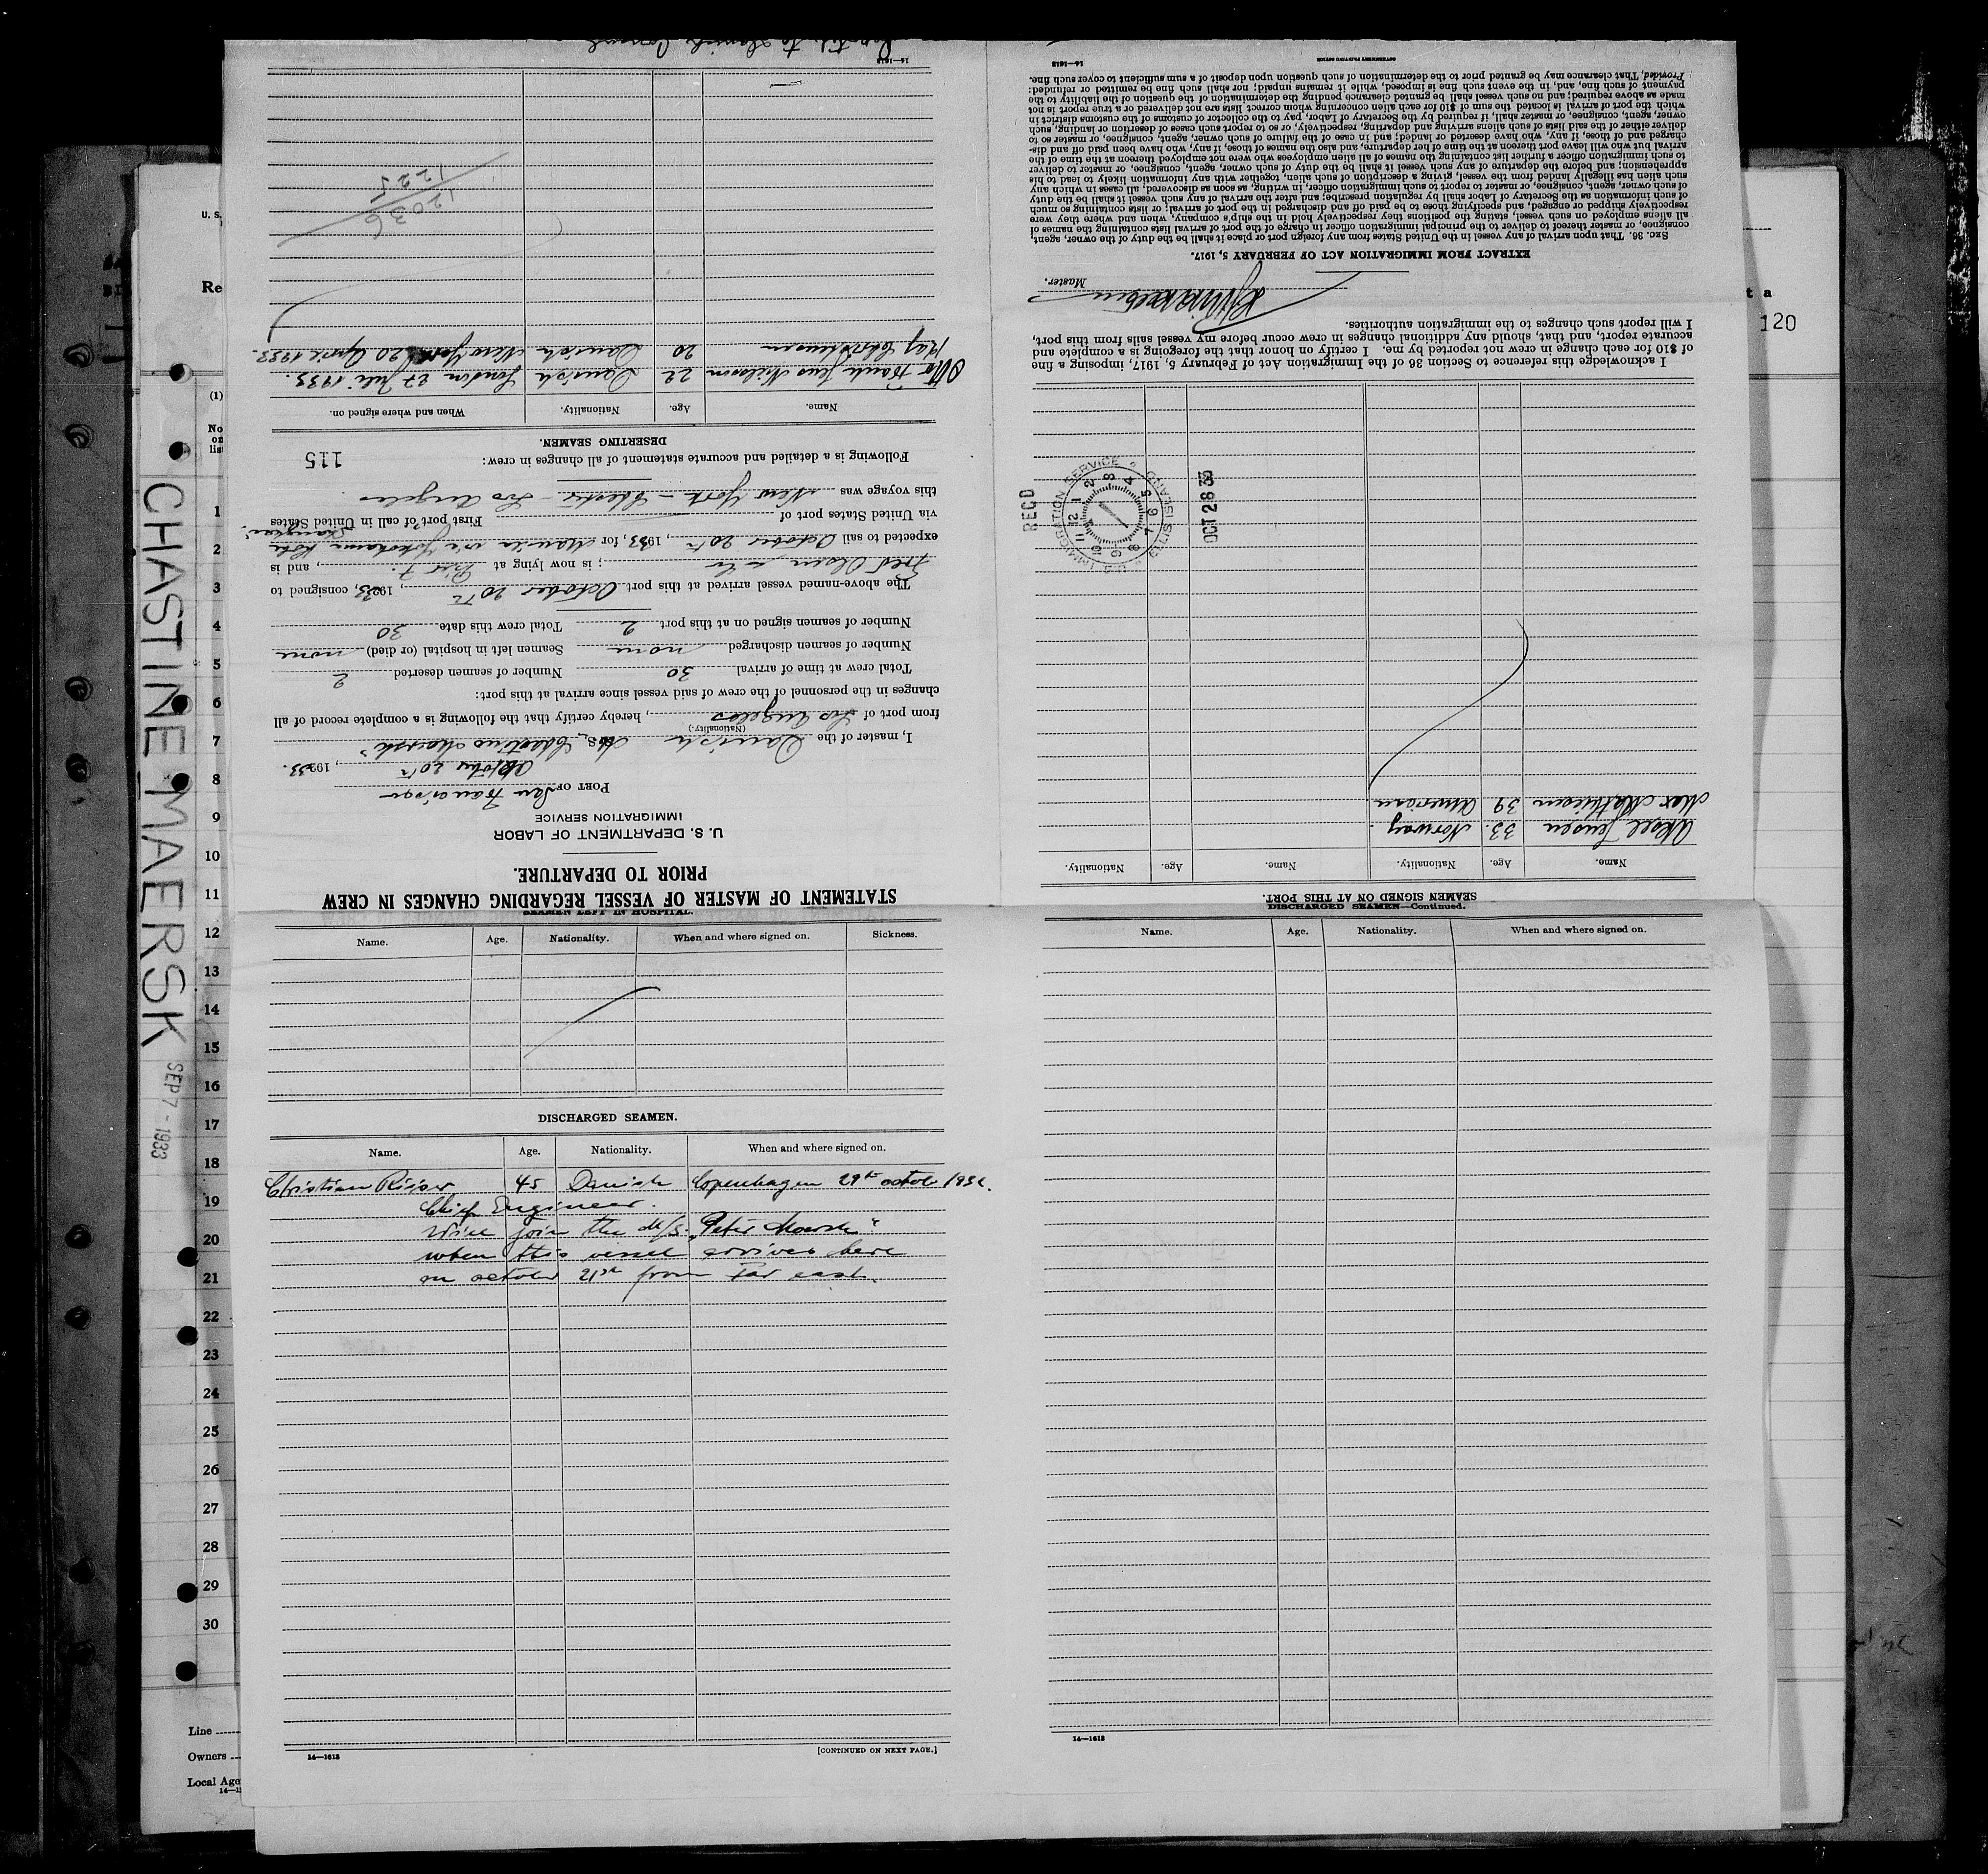 CHASTINE MAERSK
SEP 7 - 1933
U. S.
Re
(1)
No
on
list
1
2
3
4
5
6
7
8
9
10
11
12
13
14
15
16
17
18
19
20
21
22
23
24
25
26
27
28
29
30
Line
Owners
Local Age
t a
120
STATEMENT OF MASTER OF VESSEL REGARDING CHANGES IN CREW
PRIOR TO DEPARTURE.
U. S. DEPARTMENT OF LABOR
IMMIGRATION SERVICE
PORT OF San Francisco
October 20th, 1933.
I, master of the Danish M/S. "Chastine Maersk"
(Nationality.)
from port of Los Angeles, hereby certify that the following is a complete record of all
changes in the personnel of the crew of said vessel since arrival at this port:
Total crew at time of arrival 30 Number of seamen deserted 2
Number of seamen discharged none Seamen left in hospital (or died) none
Number of seamen signed on at this port 2 Total crew this date 30
The above-named vessel arrived at this port October 20th, 1933, consigned to
Fred Olsen Line; is now lying at Pier 7, and is
expected to sail October 20th, 1933, for Manila via Yokohama Kobe
Shanghai
via United States port of First port of call in United States
this voyage was New York - Los Angeles
Following is a detailed and accurate statement of all changes in crew:
115
DESERTING SEAMEN.
Name. Age. Nationality. When and where signed on.
Jens Nielsen 22 Danish London 27 Juli 1933.
Kaj Christensen 20 Danish New York 20 April 1933.
12036
1225
14—1613
Danish Consul
SEAMEN SIGNED ON AT THIS PORT.
Name. Age. Nationality. Name. Age. Nationality.
Aksel Jensen 33. Norway.
Max Mathiesen 39 American
REC'D
U.S. IMMIGRATION SERVICE
ELLIS ISLAND
12 1 2 3 4 5 6 7 8 9 10 11
OCT 28 33
I acknowledge this reference to Section 36 of the Immigration Act of February 5, 1917, imposing a fine
of $10 for each change in crew not reported by me. I certify on honor that the foregoing is a complete and
accurate report, and that, should any additional changes in crew occur before my vessel sails from this port,
I will report such changes to the immigration authorities.
Master.
EXTRACT FROM IMMIGRATION ACT OF FEBRUARY 5, 1917.
SEC. 36. That upon arrival of any vessel in the United States from any foreign port or place it shall be the duty of the owner, agent,
consignee, or master thereof to deliver to the principal immigration officer in charge of the port of arrival lists containing the names of
all aliens employed on such vessel, stating the positions they respectively hold in the ship's company, when and where they were
respectively shipped or engaged, and specifying those to be paid off and discharged in the port of arrival; or lists containing so much
of such information as the Secretary of Labor shall by regulation prescribe; and after the arrival of any such vessel it shall be the duty
of such owner, agent, consignee, or master to report to such immigration officer, in writing, as soon as discovered, all cases in which any
such alien has illegally landed from the vessel, giving a description of such alien, together with any information likely to lead to his
apprehension; and before the departure of any such vessel it shall be the duty of such owner, agent, consignee, or master to deliver
to such immigration officer a further list containing the names of all alien employees who were not employed thereon at the time of the
arrival but who will leave port thereon at the time of her departure, and also the names of those, if any, who have been paid off and dis-
charged and of those, if any, who have deserted or landed; and in case of the failure of such owner, agent, consignee, or master so to
deliver either of the said lists of such aliens arriving and departing, respectively, or so to report such cases of desertion or landing, such
owner, agent, consignee, or master shall, if required by the Secretary of Labor, pay to the collector of customs of the customs district in
which the port of arrival is located the sum of $10 for each alien concerning whom correct lists are not delivered or a true report is not
made as above required; and no such vessel shall be granted clearance pending the determination of the question of the liability to the
payment of such fine, and, in the event such fine is imposed, while it remains unpaid; nor shall such fine be remitted or refunded:
Provided, That clearance may be granted prior to the determination of such question upon deposit of a sum sufficient to cover such fine.
14—1613
GOVERNMENT PRINTING OFFICE
SEAMEN LEFT IN HOSPITAL.
Name. Age. Nationality. When and where signed on. Sickness.
DISCHARGED SEAMEN.
Name. Age. Nationality. When and where signed on.
Christian Riiser 45 Danish Copenhagen 29th october 1932.
Chief Engineer.
Will join the M/S. "Peter Maersk"
when this vessel arrives here
on october 21st from Far east.
14—1613
[CONTINUED ON NEXT PAGE.]
DISCHARGED SEAMEN—Continued.
Name. Age. Nationality. When and where signed on.
14—1613